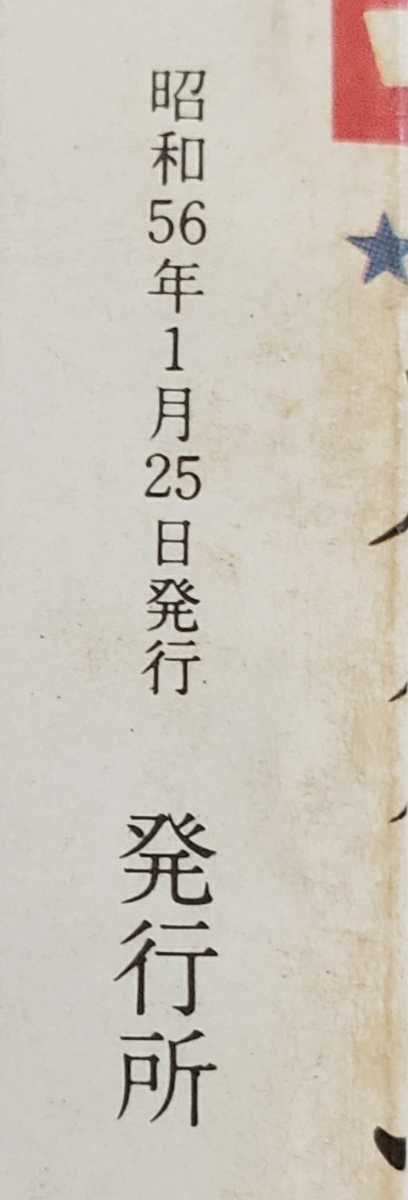 昭和56年1月25日発行 発行所